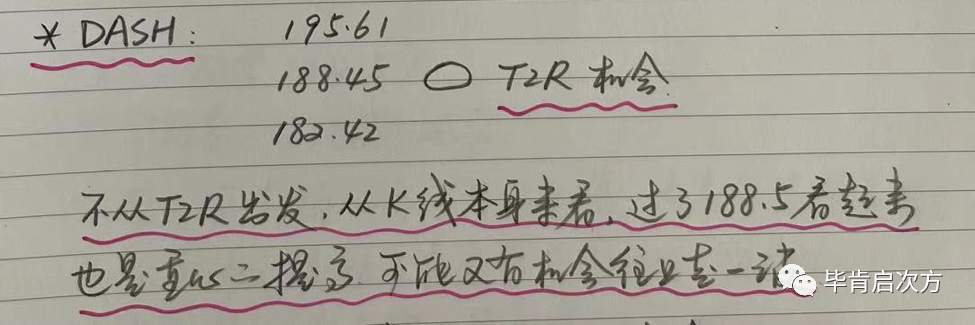 * DASH: 195.61
188.45 ○ T2R 机会
182.42
不从T2R出发,从K线本身来看,过了188.5看起来
也是 二提高 可能又有机会往上走一
毕肯启次方